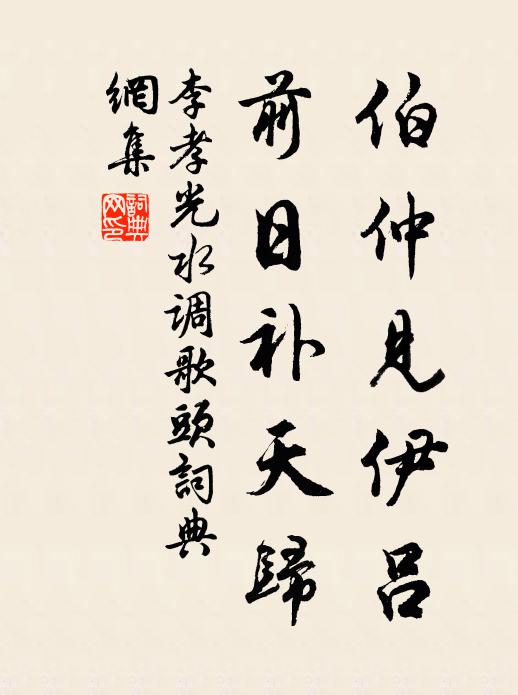 伯仲見伊呂
前日补天歸
李孝光水调歌頭詞典
網集
詞典
网印